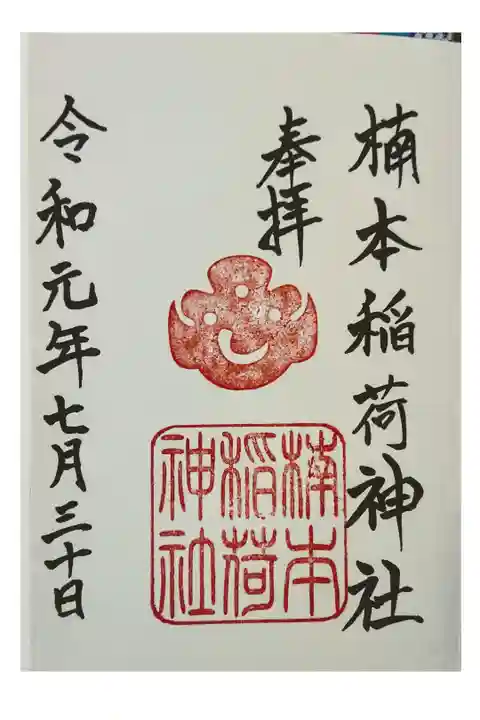 楠本稲荷神社
奉拝
楠本
稲荷
神社
令和元年七月三十日